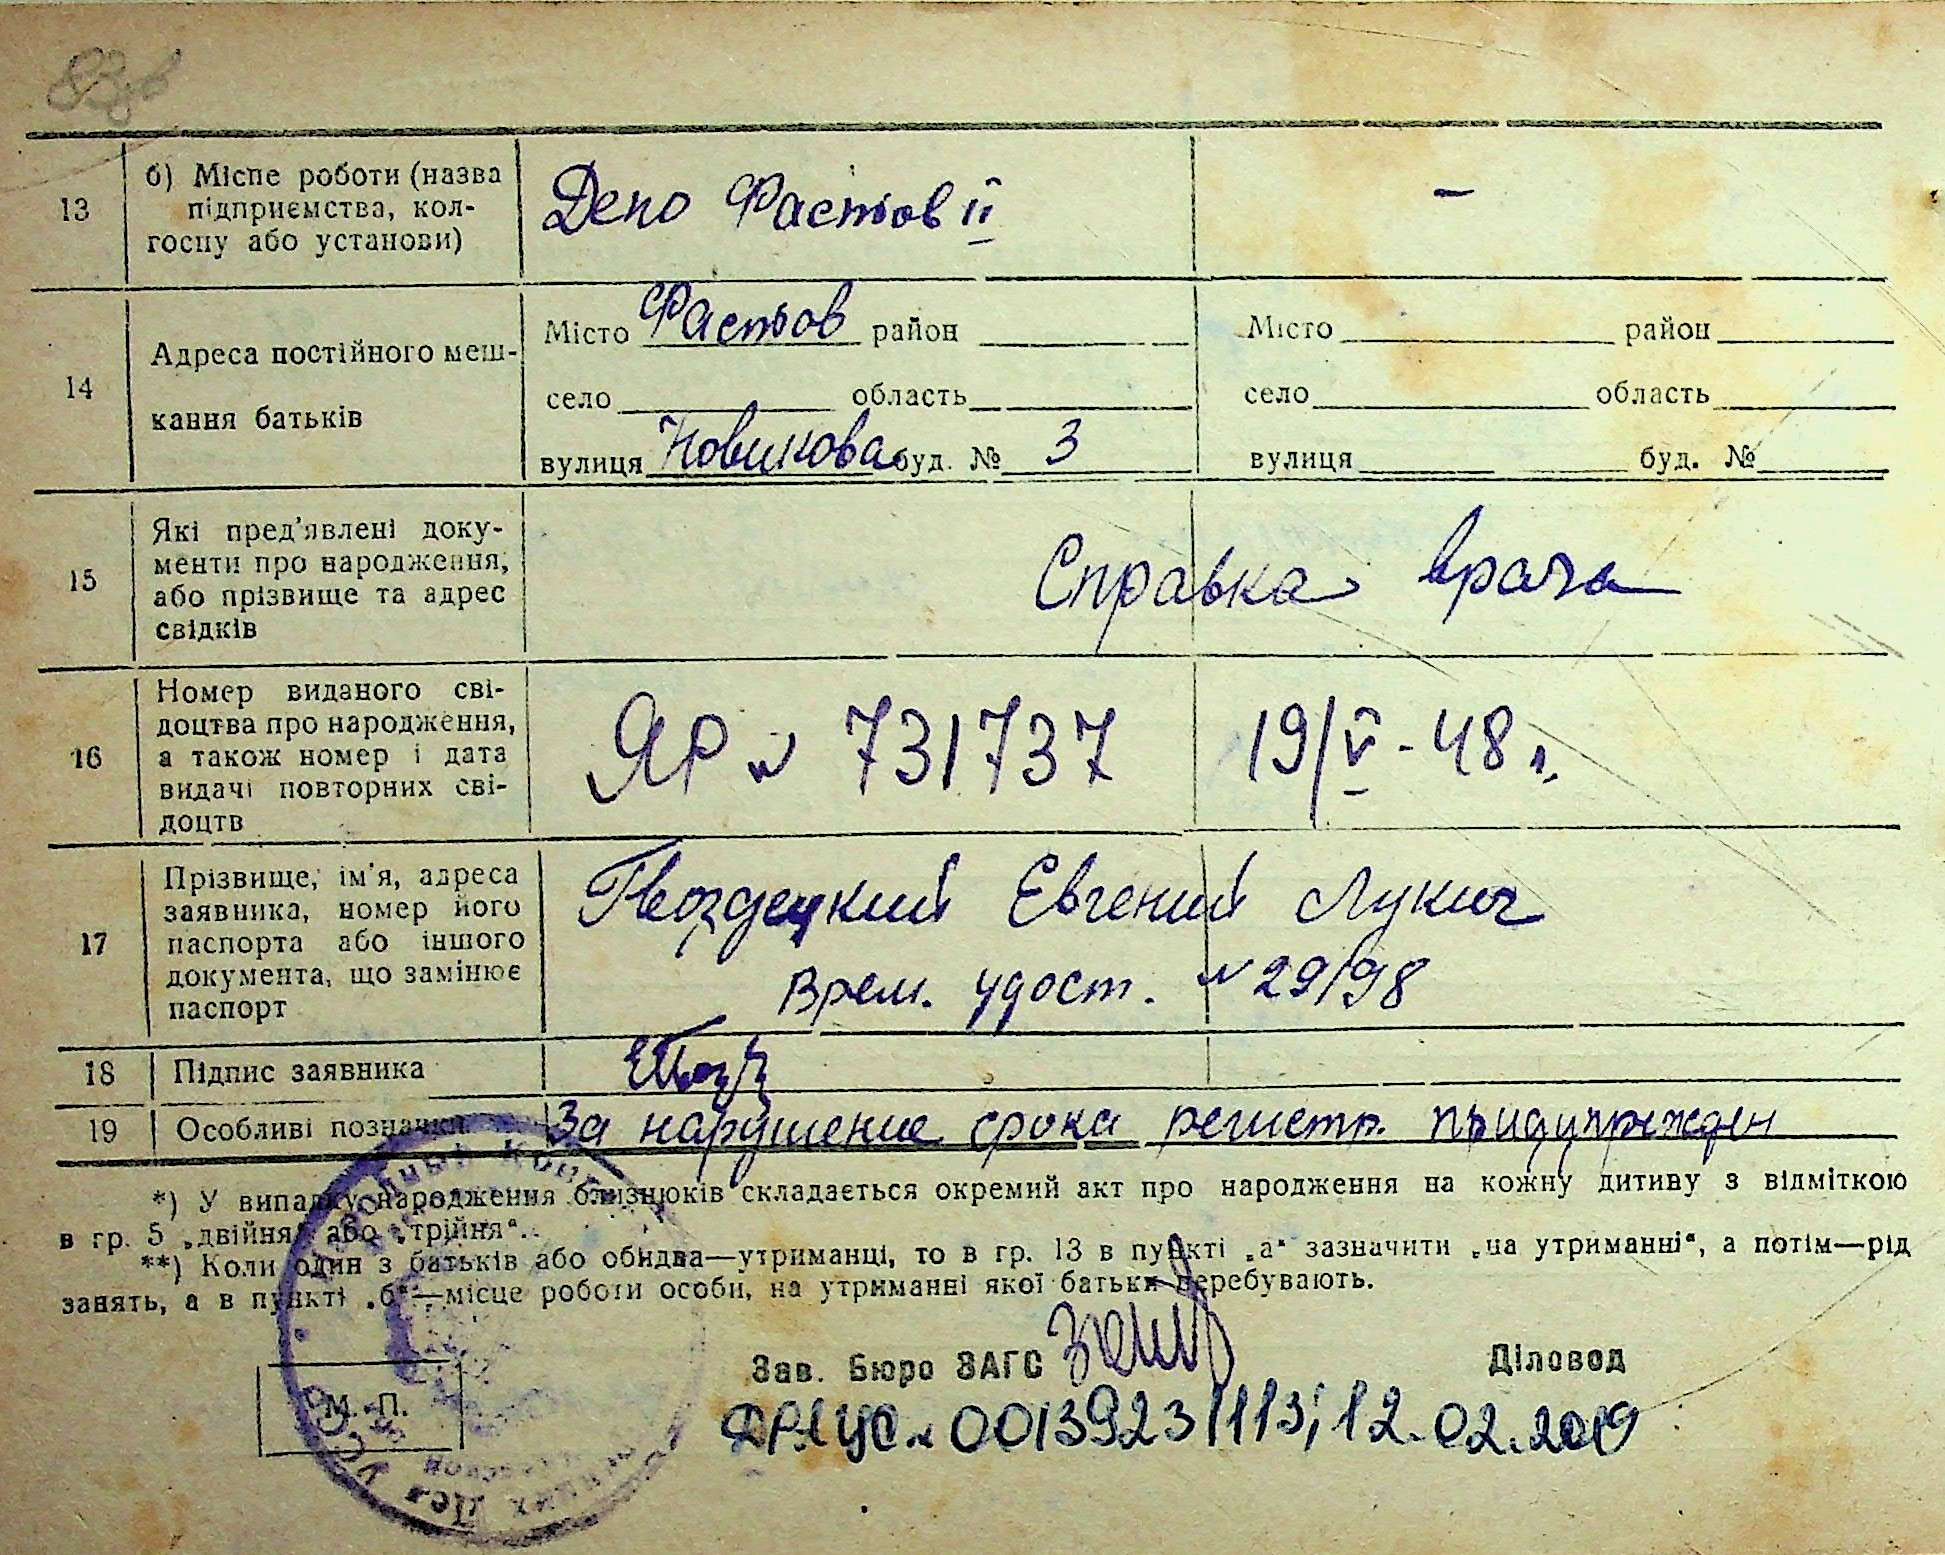 83зв
13
б) Місце роботи (назва
підприємства, кол-
госпу або установи)
Депо Фастов II
–
14
Адреса постійного меш-
кання батьків
Місто Фастов район
село область
вулиця Новикова буд. № 3
Місто район
село область
вулиця буд. №
15
Які пред'явлені доку-
менти про народження,
або прізвище та адрес
свідків
Справка врача
16
Номер виданого сві-
доцтва про народження,
а також номер і дата
видачі повторних сві-
доцтв
ЯР № 731737 19/V-48 г.
17
Прізвище, ім'я, адреса
заявника, номер його
паспорта або іншого
документа, що замінює
паспорт
Гвоздецкий Евгений Лукич
Врем. удост. № 29/98
18
Підпис заявника
19
Особливі позначки
За нарушение срока регистр. придупрежден
*) У випадку народження близнюків складається окремий акт про народження на кожну дитину з відміткою
в гр. 5 „двійня“ або „трійня“.
**) Коли один з батьків або обидва—утриманці, то в гр. 13 в пункті „а“ зазначити „на утриманні“, а потім—рід
занять, а в пункті „б“—місце роботи особи, на утриманні якої батьки перебувають.
Зав. Бюро ЗАГС
Діловод
М. П.
ДРАЦС № 00139231113; 12.02.2019